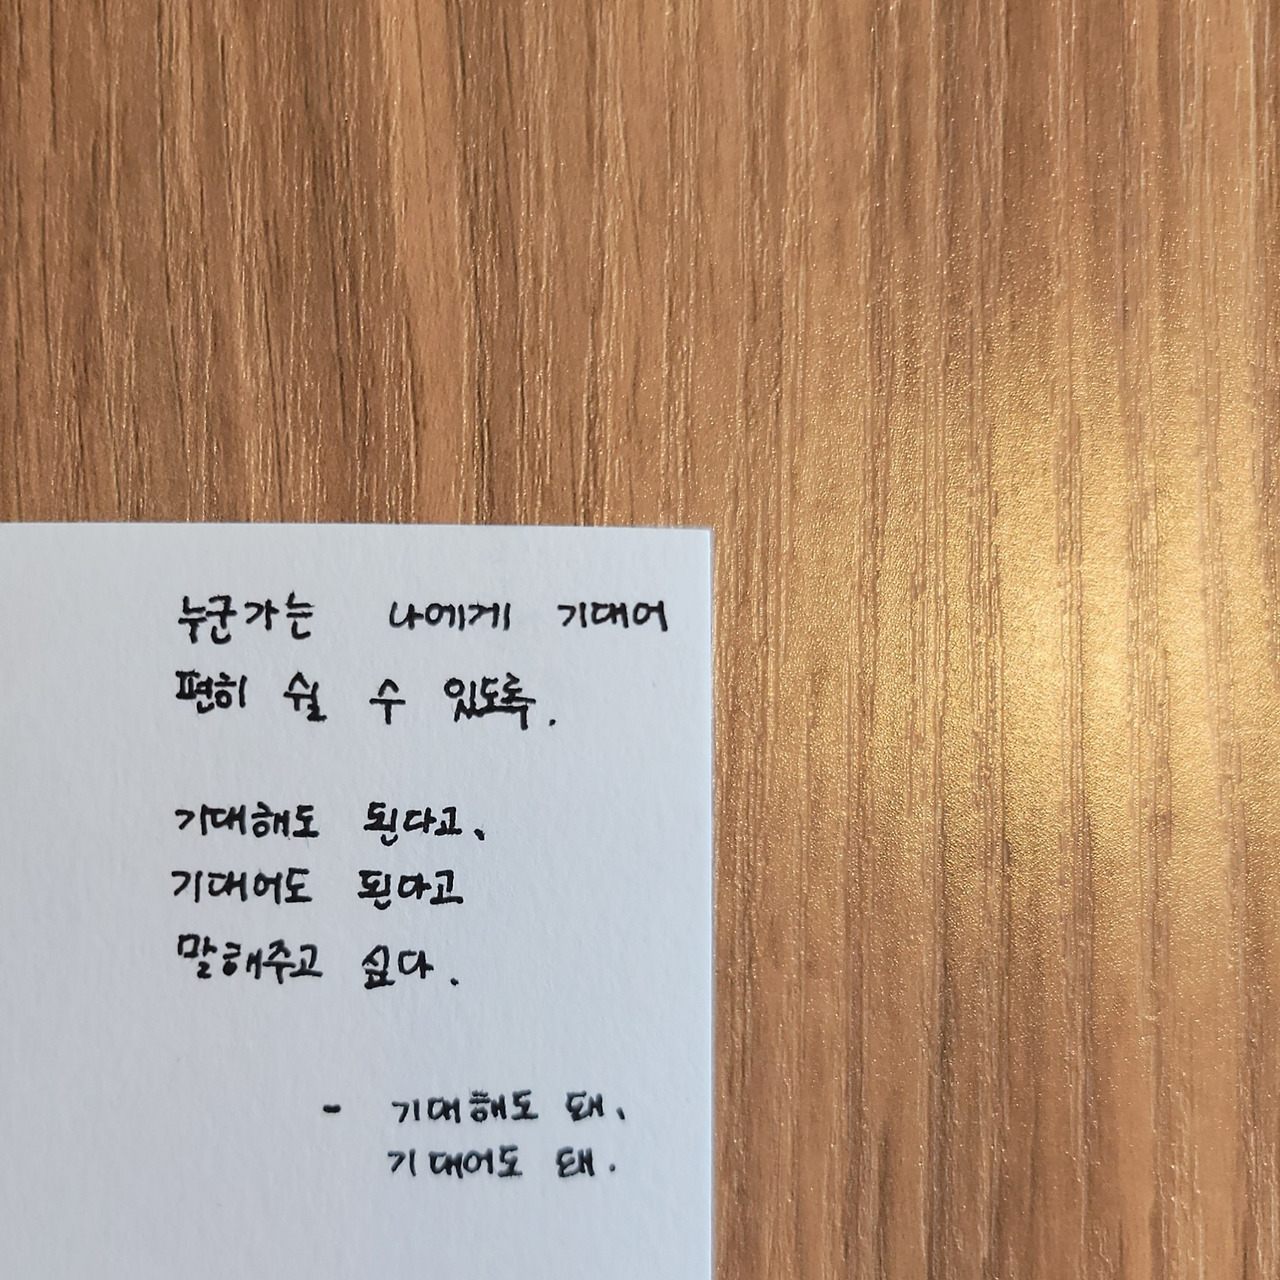 누군가는 나에게 기대어
편히 쉴 수 있도록.
기대해도 된다고,
기대어도 된다고
말해주고 싶다.
- 기대해도 돼,
기대어도 돼.